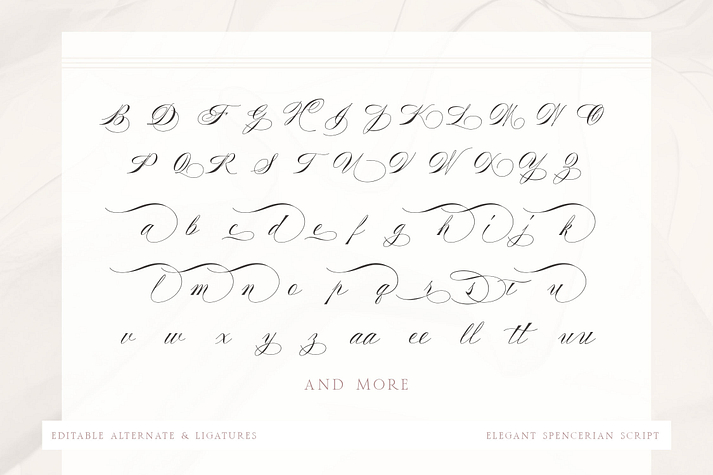 B D F G H I J K L M N O
P Q R S T U V W X Y Z
a b c d e f g h i j k
l m n o p q r s t u
v w x y z aa ee ll tt uu
AND MORE
EDITABLE ALTERNATE & LIGATURES
ELEGANT SPENCERIAN SCRIPT